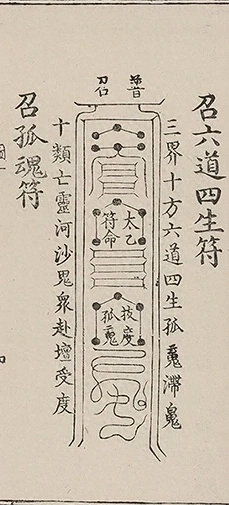 召六道四生符
普召
三界十方六道四生孤䰟滯
太乙
符命
拔度
孤䰟
十類亡靈河沙鬼衆赴壇受度
召孤魂符